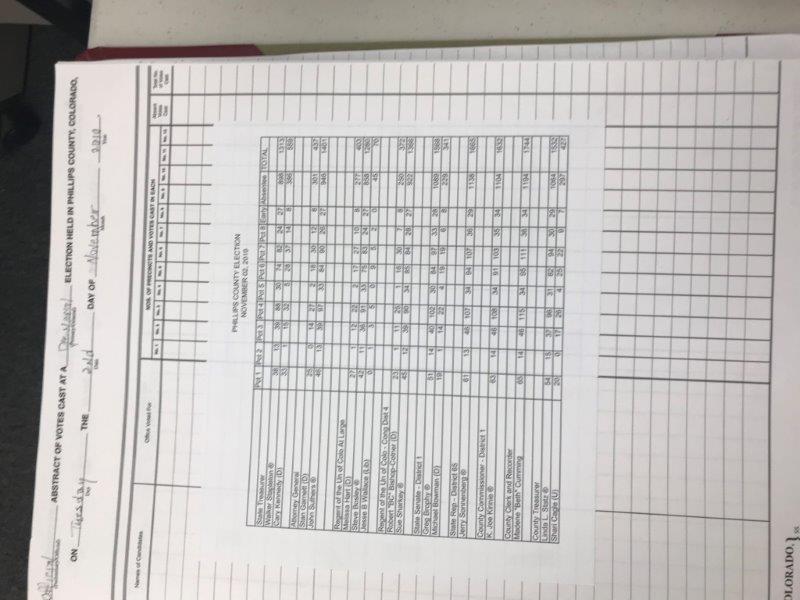 Official ABSTRACT OF VOTES CAST AT A General ELECTION HELD IN PHILLIPS COUNTY, COLORADO,
ON Tuesday THE 2nd DAY OF November 2010
Day Month Year
Names of Candidates Office Voted For NOS. OF PRECINCTS AND VOTES CAST IN EACH Absent Votes Cast Total No. of Votes Cast
No. 1 No. 2 No. 3 No. 4 No. 5 No. 6 No. 7 No. 8 No. 9 No. 10 No. 11 No. 12
PHILLIPS COUNTY ELECTION
NOVEMBER 02, 2010
Pct 1 Pct 2 Pct 3 Pct 4 Pct 5 Pct 6 Pct 7 Pct 8 Early Absentee TOTAL
State Treasurer
Walker Stapleton ® 38 13 39 88 30 74 82 24 27 898 1313
Cary Kennedy (D) 33 1 15 32 5 28 37 14 8 386 559
Attorney General
Stan Garnett (D) 25 0 14 27 2 18 30 12 8 301 437
John Suthers ® 46 13 39 97 33 84 90 26 27 946 1401
Regent of the Un of Colo At Large
Melissa Hart (D) 27 1 12 22 2 17 27 10 8 277 403
Steve Bosley ® 42 11 36 91 33 75 83 24 27 858 1280
Jesse B Wallace (Lib) 0 1 3 5 0 9 5 2 0 45 70
Regent of the Un of Colo - Cong Dist 4
Robert "BC" Bishop-Cotner (D) 23 1 11 25 1 16 30 7 8 250 372
Sue Sharkey ® 45 12 39 90 34 85 84 28 27 922 1366
State Senate - District 1
Greg Brophy ® 51 14 40 102 30 84 97 33 28 1089 1568
Michael Bowman (D) 19 1 14 22 4 19 19 6 8 229 341
State Rep - District 65
Jerry Sonnenberg ® 61 13 46 107 34 94 107 36 29 1138 1665
County Commissioner - District 1
K. Joe Kinnie ® 63 14 46 108 34 91 103 35 34 1104 1632
County Clerk and Recorder
Madlene "Beth" Cumming 65 14 46 115 34 95 111 36 34 1194 1744
County Treasurer
Linda L. Statz ® 54 15 37 96 31 82 94 30 29 1064 1532
Sheri Cagle (U) 20 0 17 26 4 25 22 9 7 297 427
COLORADO, } ss